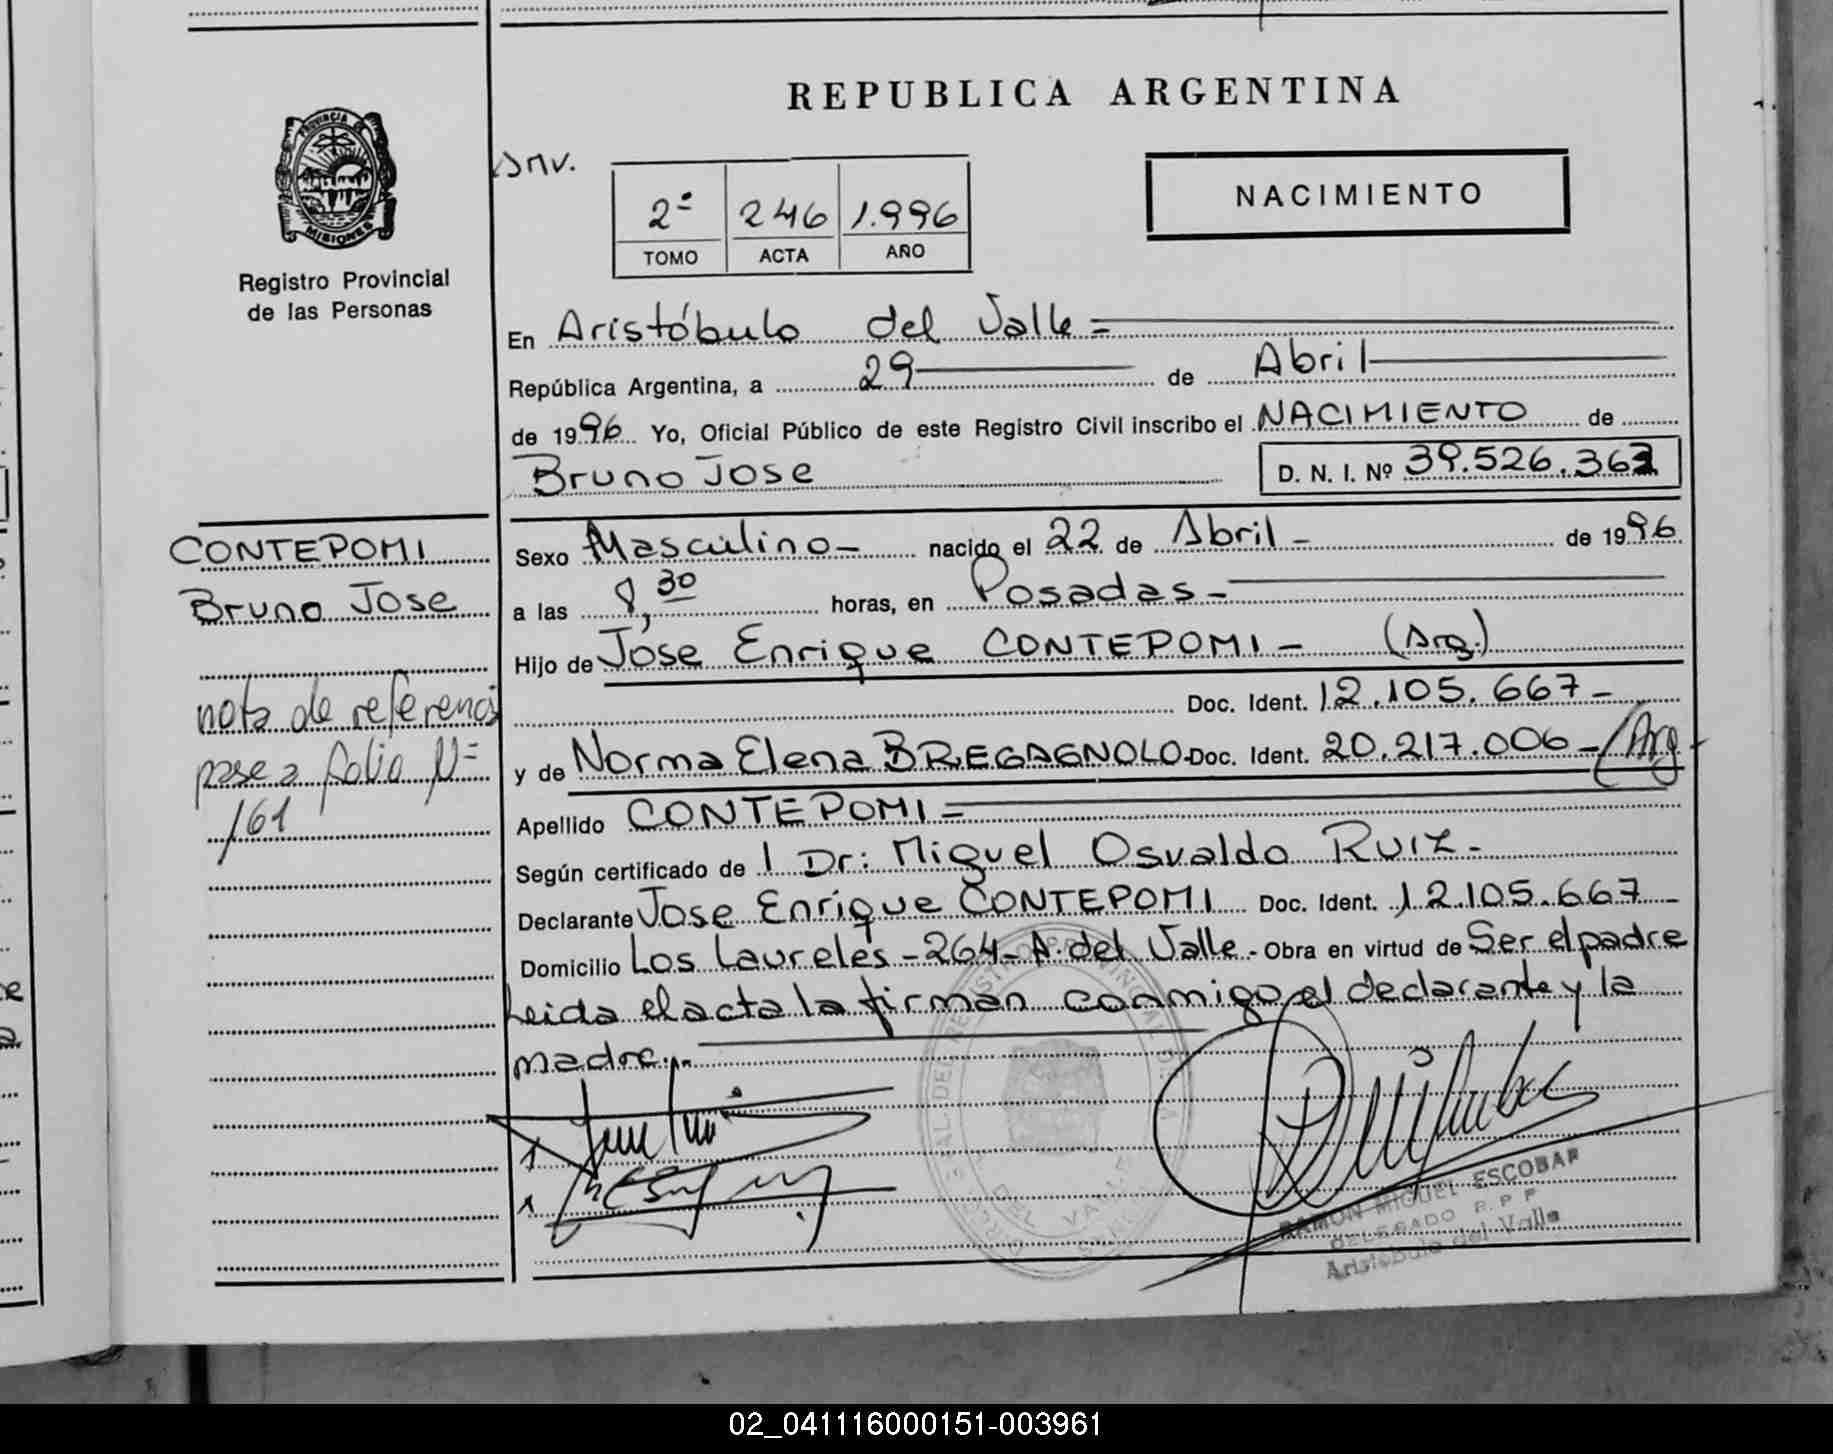 REPUBLICA ARGENTINA
PROVINCIA DE
MISIONES
Registro Provincial
de las Personas
2º 246 1.996
TOMO ACTA AÑO
NACIMIENTO
En Aristóbulo del Valle =
República Argentina, a 29 de Abril
de 1996 Yo, Oficial Público de este Registro Civil inscribo el NACIMIENTO de
Bruno Jose D. N. I. Nº 39.526.362
CONTEPOMI
Bruno Jose
nota de referencia
pase a folio Nº
161
Sexo Masculino - nacido el 22 de Abril - de 1996
a las 8,30 horas, en Posadas -
Hijo de Jose Enrique CONTEPOMI - (Arg.)
Doc. Ident. 12.105.667 -
y de Norma Elena BREGAGNOLO - Doc. Ident. 20.217.006 - (Arg
Apellido CONTEPOMI =
Según certificado de 1 Dr: Miguel Osvaldo RUIZ -
Declarante Jose Enrique CONTEPOMI Doc. Ident. 12.105.667 -
Domicilio Los Laureles - 264 - A. del Valle - Obra en virtud de Ser el padre
Leida el acta la firman conmigo, el declarante y la
madre.-
RAMON MIGUEL ESCOBAR
DELEGADO R. P. P.
Aristobulo del Valle
02_041116000151-003961